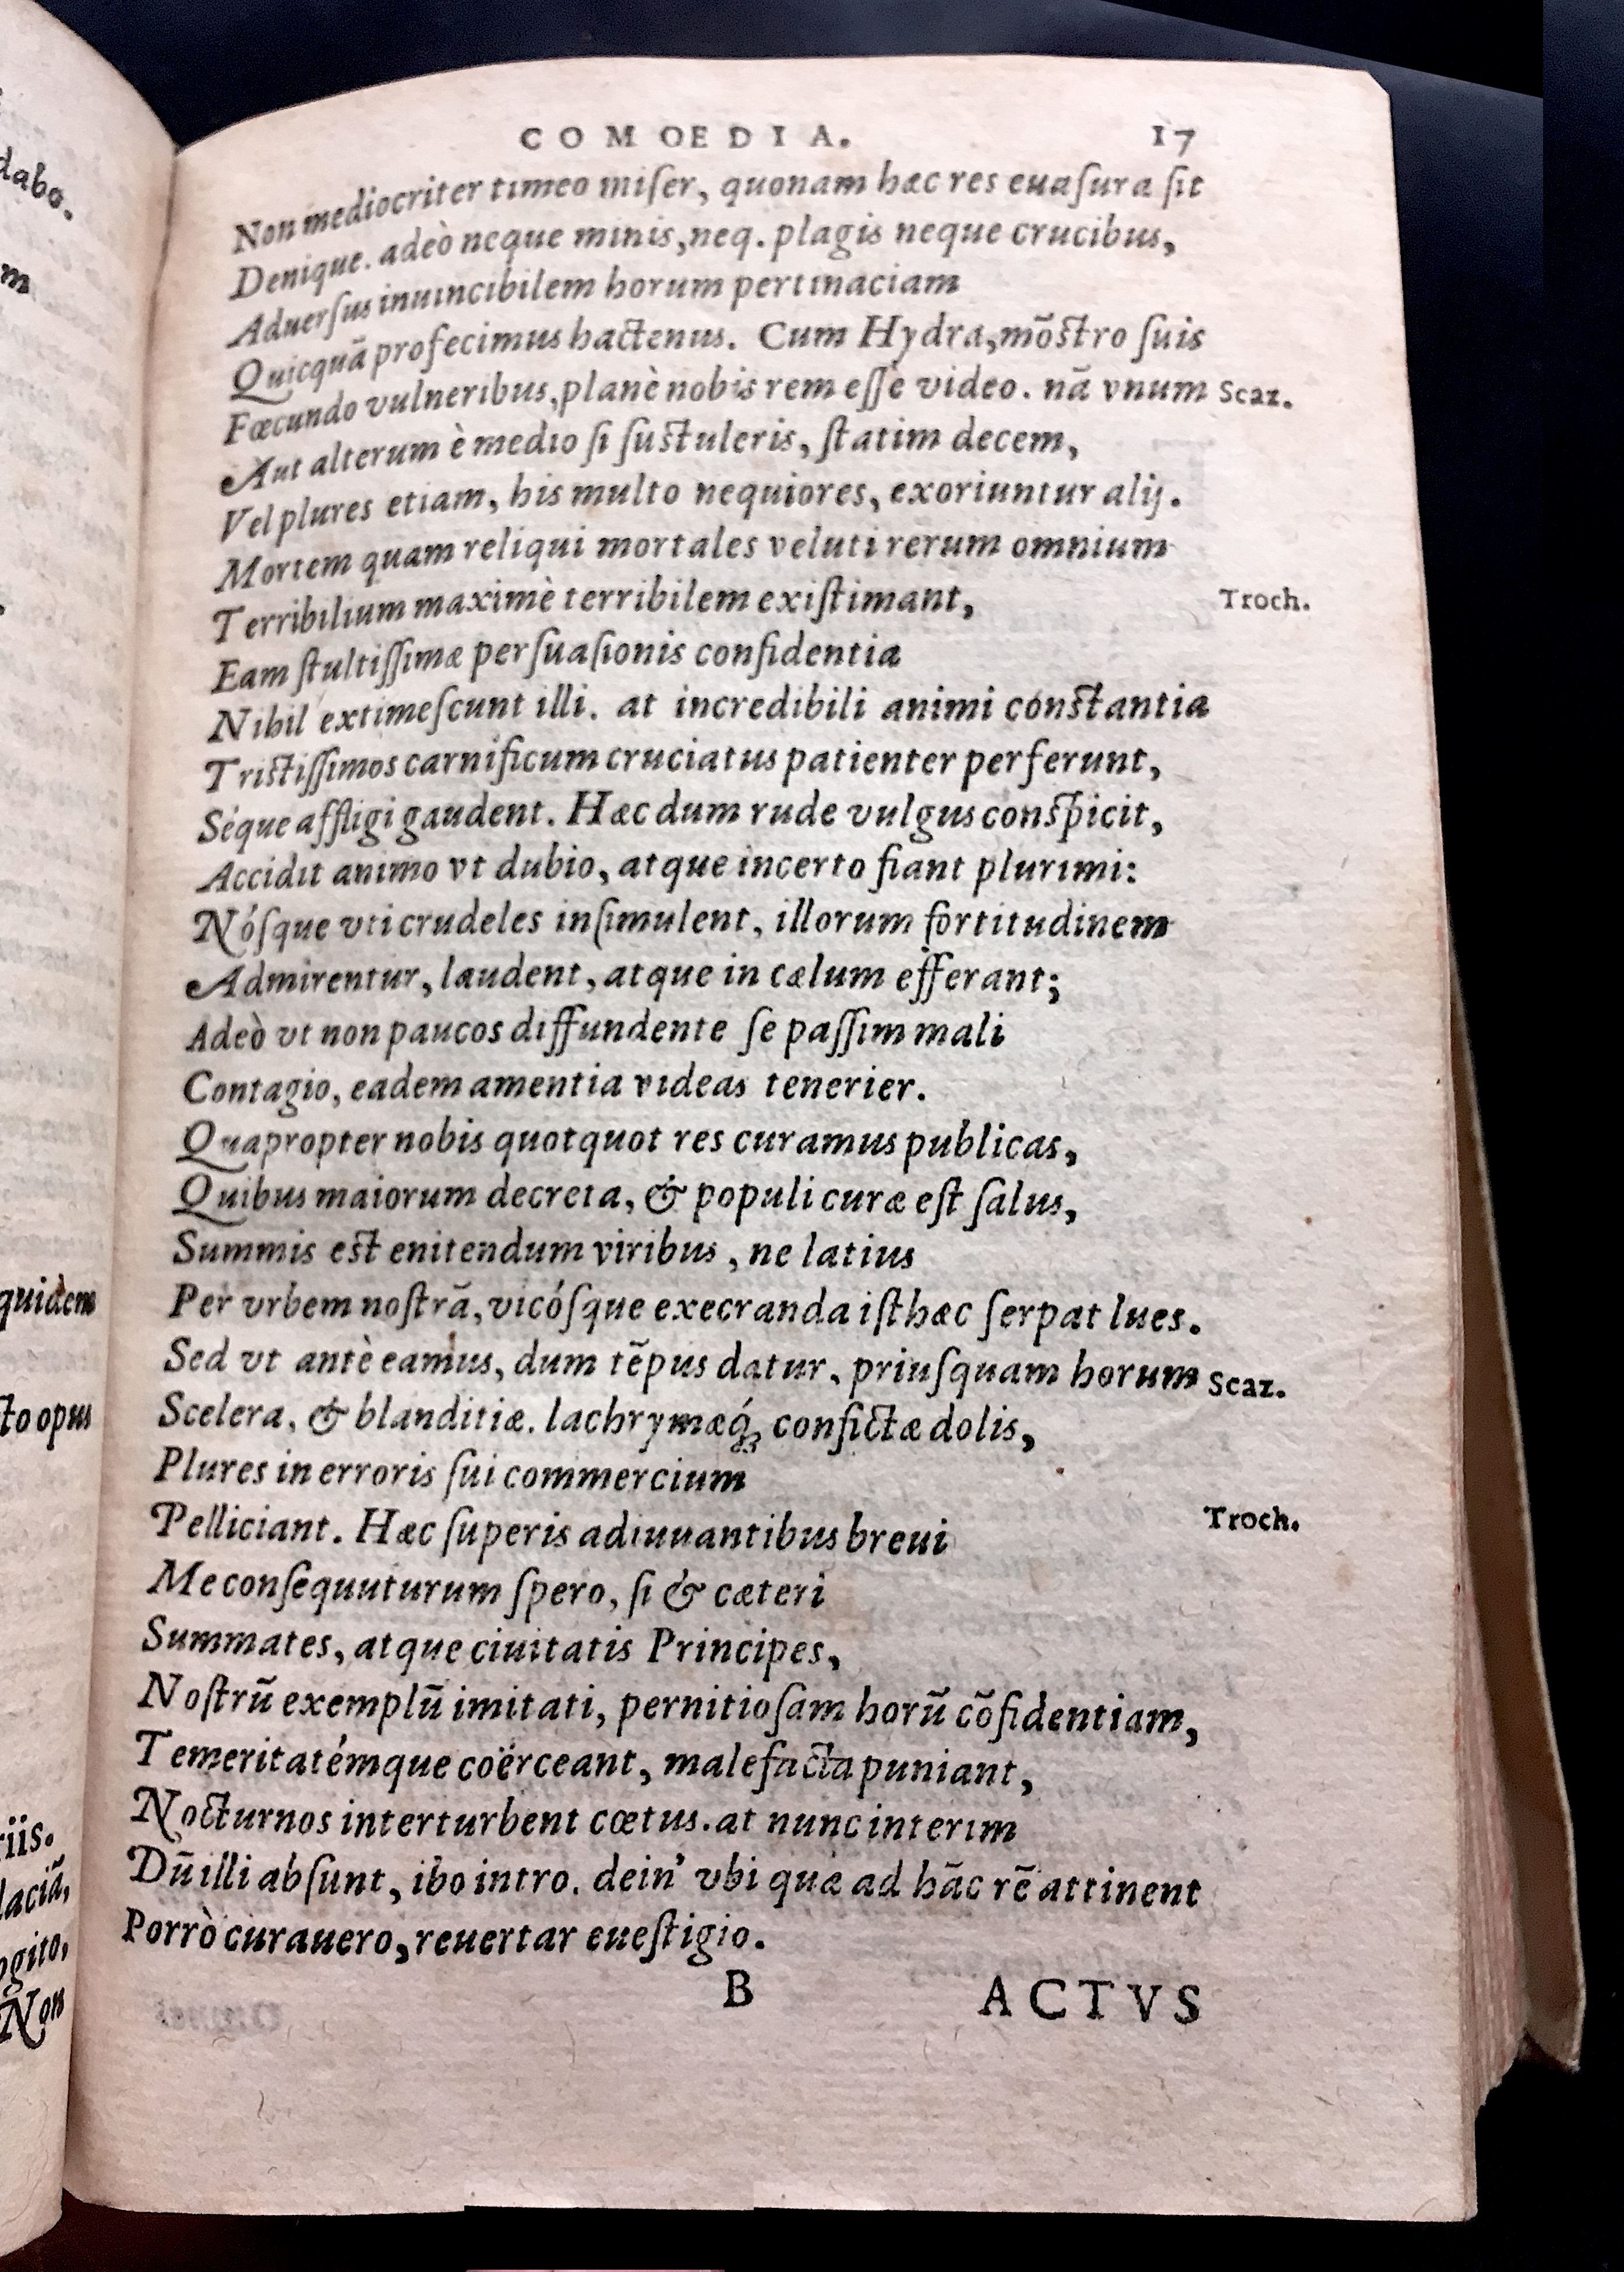 COMOEDIA. 17
Non mediocriter timeo miſer, quonam hæc res euaſura ſit
Denique. adeò neque minis, neq. plagis neque crucibus,
Aduerſus inuincibilem horum pertinaciam
Quicquã profecimus hactenus. Cum Hydra, mõſtro ſuis
Fœcundo vulneribus, planè nobis rem eſſe video. nã vnum Scaz.
Aut alterum è medio ſi ſuſtuleris, ſtatim decem,
Vel plures etiam, his multo nequiores, exoriuntur alij.
Mortem quam reliqui mortales veluti rerum omnium
Terribilium maximè terribilem exiſtimant, Troch.
Eam ſtultiſſimæ perſuaſionis confidentia
Nihil extimeſcunt illi. at incredibili animi conſtantia
Triſtiſſimos carnificum cruciatus patienter perferunt,
Séque affligi gaudent. Hæc dum rude vulgus conſpicit,
Accidit animo vt dubio, atque incerto fiant plurimi:
Nóſque vti crudeles inſimulent, illorum fortitudinem
Admirentur, laudent, atque in cælum efferant;
Adeò vt non paucos diffundente ſe paſſim mali
Contagio, eadem amentia videas tenerier.
Quapropter nobis quotquot res curamus publicas,
Quibus maiorum decreta, & populi curæ eſt ſalus,
Summis eſt enitendum viribus, ne latius
Per vrbem noſtrã, vicóſque execranda iſthæc ſerpat lues.
Sed vt antè eamus, dum tẽpus datur, priuſquam horum Scaz.
Scelera, & blanditiæ. lachrymæq́; confictæ dolis,
Plures in erroris ſui commercium
Pelliciant. Hæc ſuperis adiuuantibus breui Troch.
Me conſequuturum ſpero, ſi & cæteri
Summates, atque ciuitatis Principes,
Noſtrũ exemplũ imitati, pernitioſam horũ cõfidentiam,
Temeritatémque coërceant, malefacta puniant,
Nocturnos interturbent cœtus. at nunc interim
Dũ illi abſunt, ibo intro. dein' vbi quæ ad hãc rẽ attinent
Porrò curauero, reuertar eueſtigio.
B ACTVS
dabo.
m
quidem
to opus
riis.
laciã,
ogito,
Non